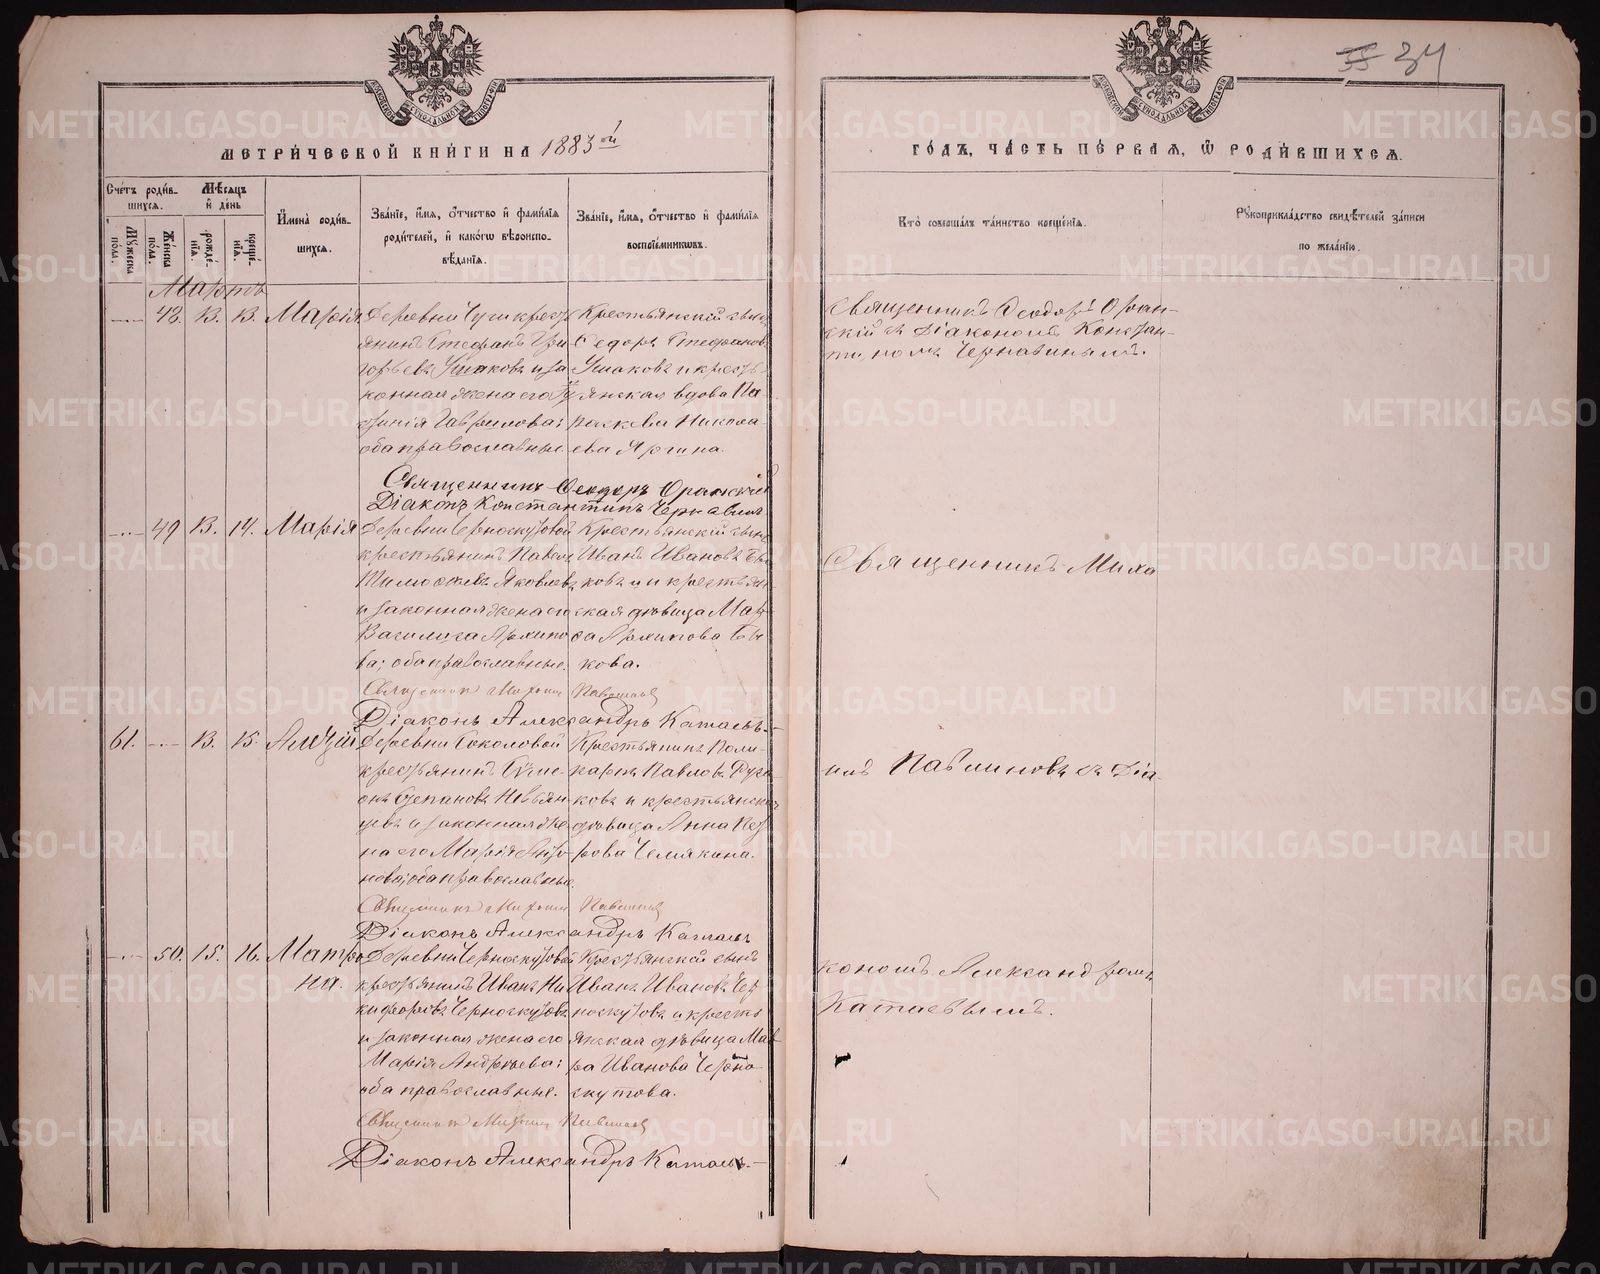 34
МЕТРИЧЕСКОЙ КНИГИ НА 1883ой
ГОДЪ, ЧАСТЬ ПЕРВАЯ, Ѿ РОДИВШИХСЯ.
Счетъ родившихся.
Мѣсяцъ и день
Имена родившихся.
Званіе, имя, отчество и фамилія родителей, и какогѡ вѣроисповѣданія.
Званіе, имя, отчество и фамилія воспріемниковъ.
Кто совершалъ таинство крещенія.
Рукоприкладство свидѣтелей записи по желанію.
Мужеска пола.
Женска пола.
рожденія.
крещенія.
Мартъ
48. 13. 13. Марія
Деревни крестьянинъ Стефанъ Григорьевъ Ушаковъ и законная жена его Гавриловa; оба православные
Крестьянскій сынъ Ѳедоръ Стефановъ Ушаковъ и крестьянская вдова Параскева Николаева Яргина.
Священникъ Ѳеодоръ Оранскій съ Діакономъ Константиномъ Чернавинымъ.
Священникъ Ѳеодоръ Оранскій
Діаконъ Константинъ Чернавинъ
49 13. 14. Марія
Деревни Черноскутовой
крестьянинъ Павелъ
Тимоѳеевъ Яковлевъ
и законная жена его
Василиса Архипова; оба православные.
Крестьянскій сынъ
Иванъ Ивановъ Быковъ и крестьянская дѣвица Марѳа Архипова Быкова.
Священникъ Михаилъ Павлиновъ
Діаконъ Александръ Катаевъ.
61. 13. 15. Алеѯій
Деревни Соколовой
крестьянинъ Симеонъ Степановъ Невьянцевъ и законная жена его Марія; оба православные.
Крестьянинъ Поликарпъ Павловъ Русаковъ и крестьянская
дѣвица Анна Петрова Чемякина.
Священникъ Михаилъ Павлиновъ
Діаконъ Александръ Катаевъ
50. 15. 16. Матрона.
Деревни Черноскутовой
крестьянинъ Иванъ Никифоровъ Черноскутовъ
и законная жена его
Марія Андреева;
оба православные.
Крестьянскій сынъ
Иванъ Ивановъ Черноскутовъ и крестьянская дѣвица Мавра Иванова Черноскутова.
Священникъ Михаилъ Павлиновъ
Діаконъ Александръ Катаевъ.
Священникъ Михаилъ Павлиновъ съ Діакономъ Александромъ
Катаевымъ.
METRIKI.GASO-URAL.RU